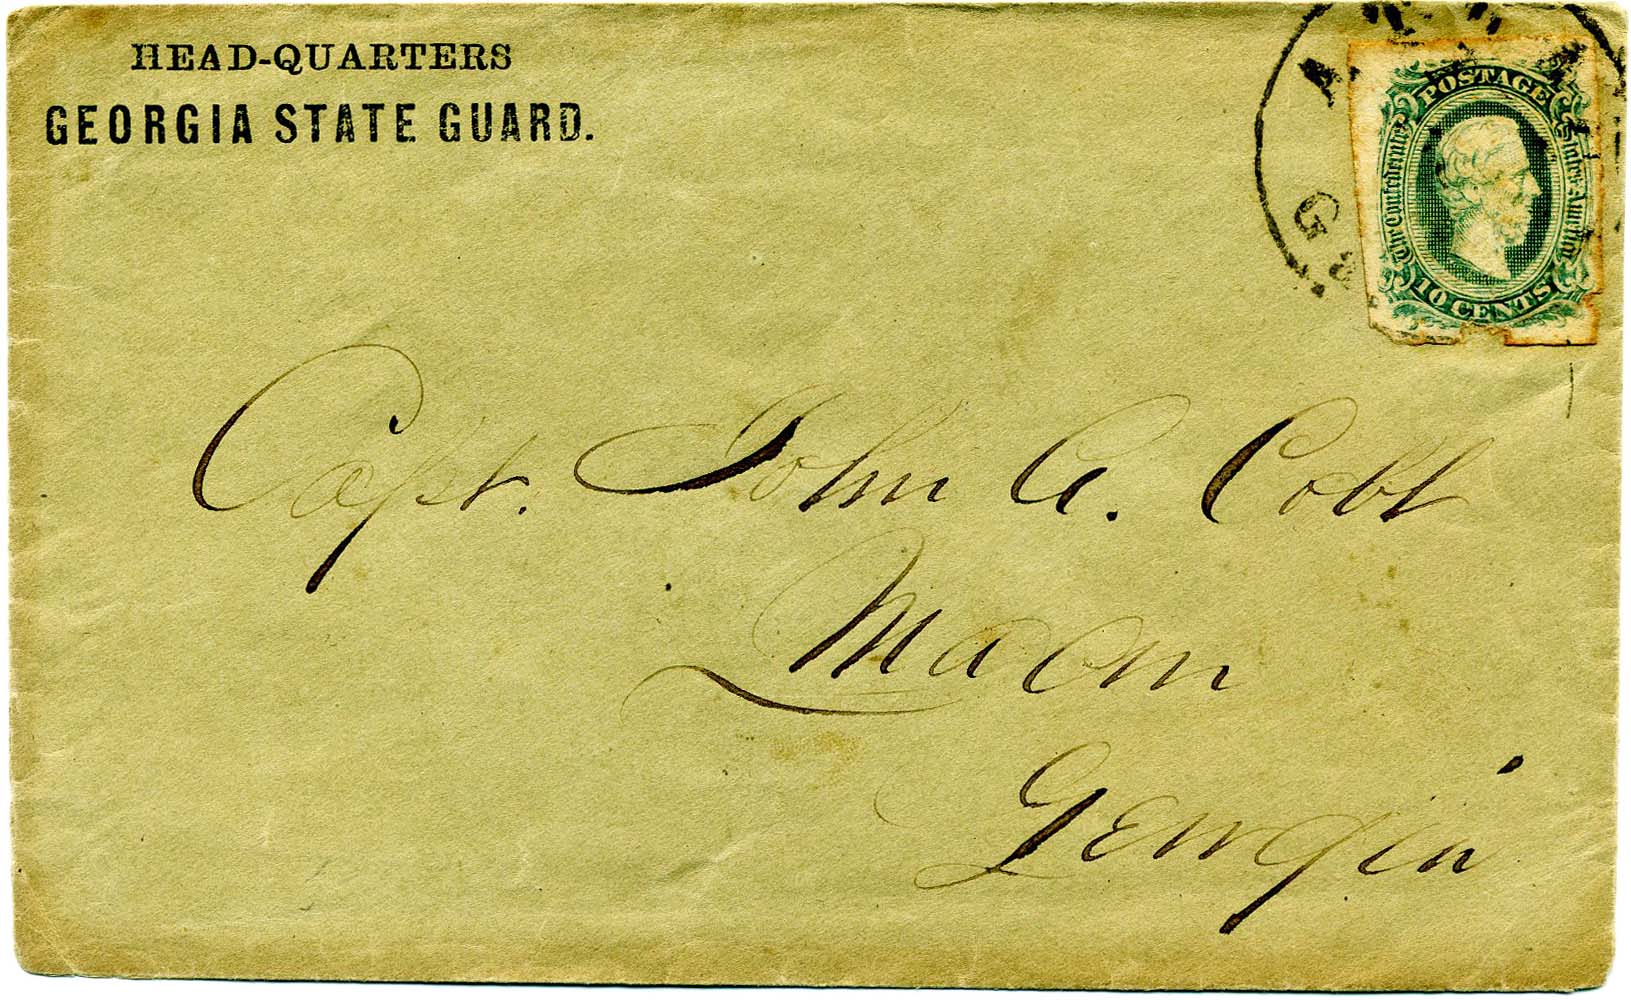 HEAD-QUARTERS
GEORGIA STATE GUARD.
POSTAGE
The Confederate States America
10 CENTS
Capt. John A. Cobb
Macon
Georgia